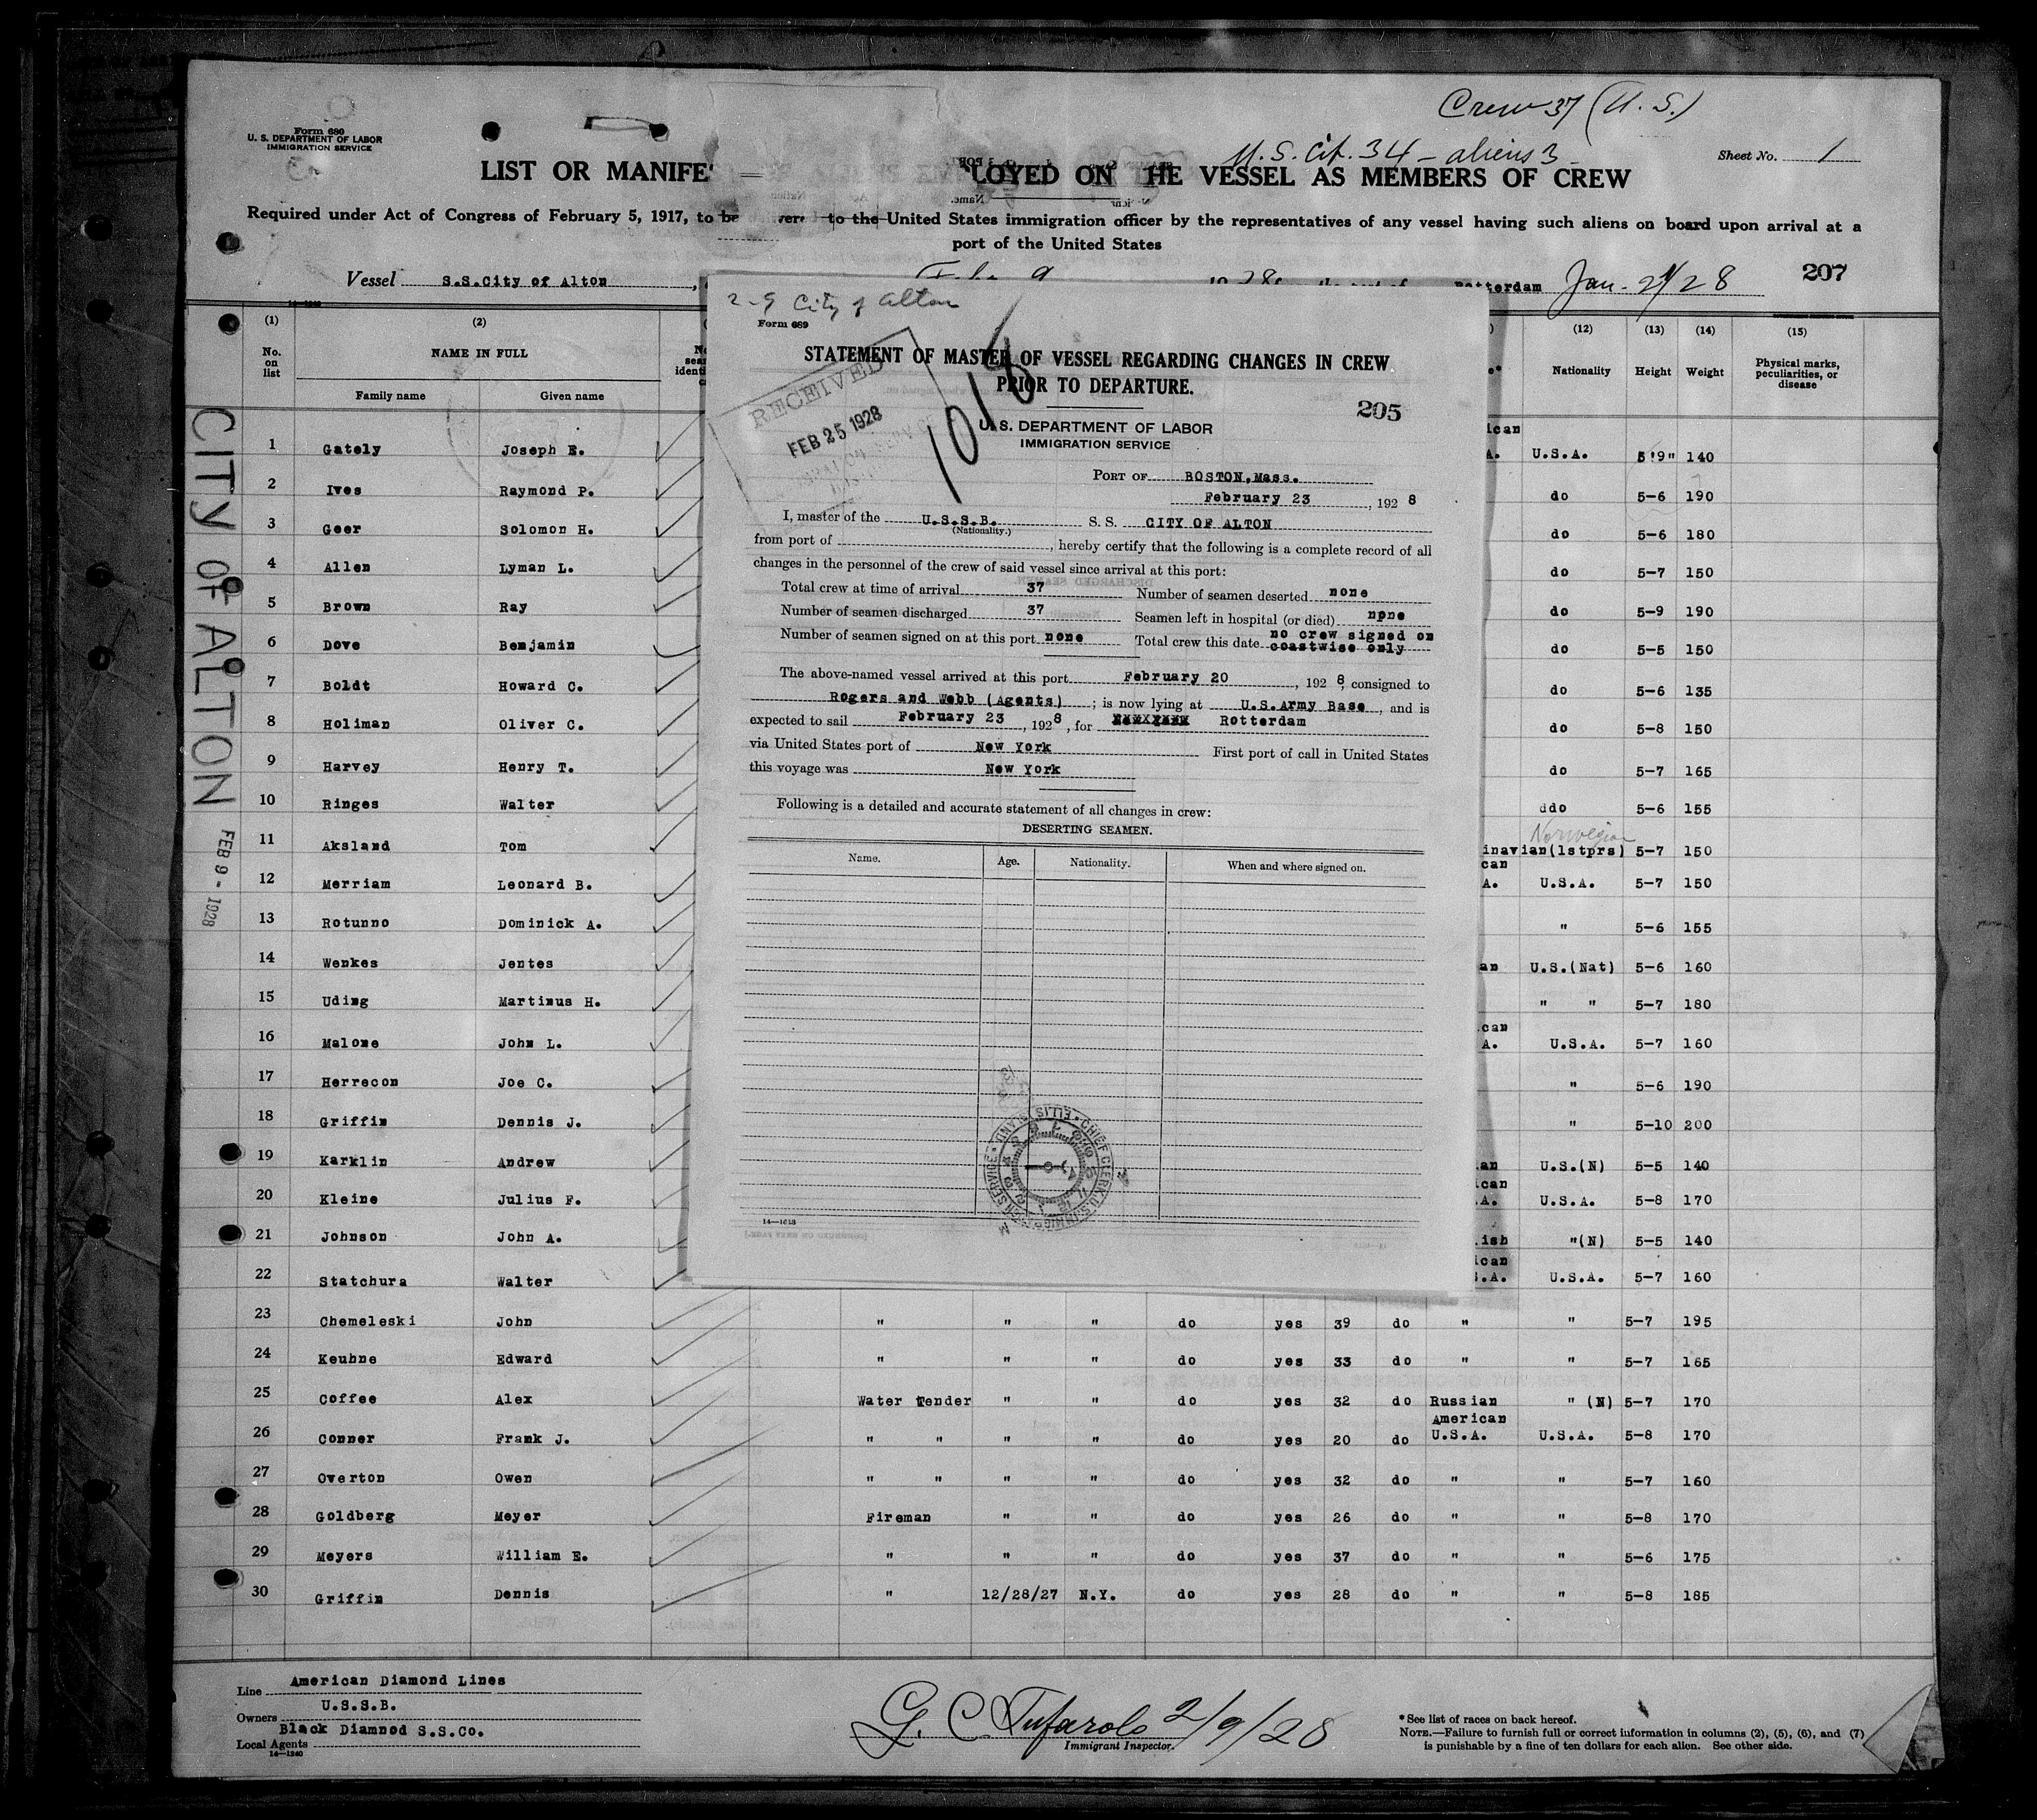 Crew 37 (U.S.)
U.S. Cit. 34 - aliens 3
Form 680
U. S. DEPARTMENT OF LABOR
IMMIGRATION SERVICE
Sheet No. 1
LIST OR MANIFE LOYED ON HE VESSEL AS MEMBERS OF CREW
Required under Act of Congress of February 5, 1917, to be vere to the United States immigration officer by the representatives of any vessel having such aliens on board upon arrival at a
port of the United States
Vessel S.S.City of Alton
Rotterdam Jan. 21/28 207
(1) (2) (12) (13) (14) (15)
No. on list
NAME IN FULL
Family name Given name
Nationality Height Weight Physical marks, peculiarities, or disease
CITY OF ALTON
FEB 9 - 1928
1 Gately Joseph E. U.S.A. 5'9" 140
2 Ives Raymond P. do 5-6 190
3 Geer Solomon H. do 5-6 180
4 Allen Lyman L. do 5-7 150
5 Brown Ray do 5-9 190
6 Dove Benjamin do 5-5 150
7 Boldt Howard C. do 5-6 135
8 Holiman Oliver C. do 5-8 150
9 Harvey Henry T. do 5-7 165
10 Ringes Walter ddo 5-6 155
Norwegian
11 Aksland Tom inavian(1stprs) 5-7 150
12 Merriam Leonard B. U.S.A. 5-7 150
13 Rotunno Dominick A. " 5-6 155
14 Wenkes Jentes U.S.(Nat) 5-6 160
15 Uding Martinus H. " " 5-7 180
16 Malone John L. U.S.A. 5-7 160
17 Herrecon Joe C. " 5-6 190
18 Griffin Dennis J. " 5-10 200
19 Karklin Andrew U.S.(N) 5-5 140
20 Kleine Julius F. U.S.A. 5-8 170
21 Johnson John A. ish "(N) 5-5 140
22 Statchura Walter U.S.A. 5-7 160
23 Chemeleski John " " " do yes 39 do " " 5-7 195
24 Keuhne Edward " " " do yes 33 do " " 5-7 165
25 Coffee Alex Water Tender " " do yes 32 do Russian " (N) 5-7 170
American
26 Conner Frank J. " " " " do yes 20 do U.S.A. U.S.A. 5-8 170
27 Overton Owen " " " " do yes 32 do " " 5-7 160
28 Goldberg Meyer Fireman " " do yes 26 do " " 5-8 170
29 Meyers William E. " " " do yes 37 do " " 5-6 175
30 Griffin Dennis " 12/28/27 N.Y. do yes 28 do " " 5-8 185
Line American Diamond Lines
Owners U.S.S.B.
Local Agents Black Diamnod S.S.Co.
14-1240
G. C. Tufarolo 2/9/28
Immigrant Inspector.
* See list of races on back hereof.
NOTE.—Failure to furnish full or correct information in columns (2), (5), (6), and (7)
is punishable by a fine of ten dollars for each alien. See other side.
2-9 City of Alton
Form 689
1016
STATEMENT OF MASTER OF VESSEL REGARDING CHANGES IN CREW
PRIOR TO DEPARTURE.
RECEIVED
FEB 25 1928
205
U. S. DEPARTMENT OF LABOR
IMMIGRATION SERVICE
PORT OF BOSTON,Mass.
February 23, 1928
I, master of the U.S.S.B. S. S. CITY OF ALTON
(Nationality.)
from port of , hereby certify that the following is a complete record of all
changes in the personnel of the crew of said vessel since arrival at this port:
Total crew at time of arrival 37 Number of seamen deserted none
Number of seamen discharged 37 Seamen left in hospital (or died) npne
Number of seamen signed on at this port none Total crew this date no crew signed on
coastwise only
The above-named vessel arrived at this port February 20, 1928, consigned to
Rogers and Webb (Agents); is now lying at U.S.Army Base, and is
expected to sail February 23, 1928, for Rotterdam
via United States port of New York First port of call in United States
this voyage was New York
Following is a detailed and accurate statement of all changes in crew:
DESERTING SEAMEN.
Name. Age. Nationality. When and where signed on.
CHIEF CLERK U.S. IMMIGRATION SERVICE ELLIS ISLAND
14-1618